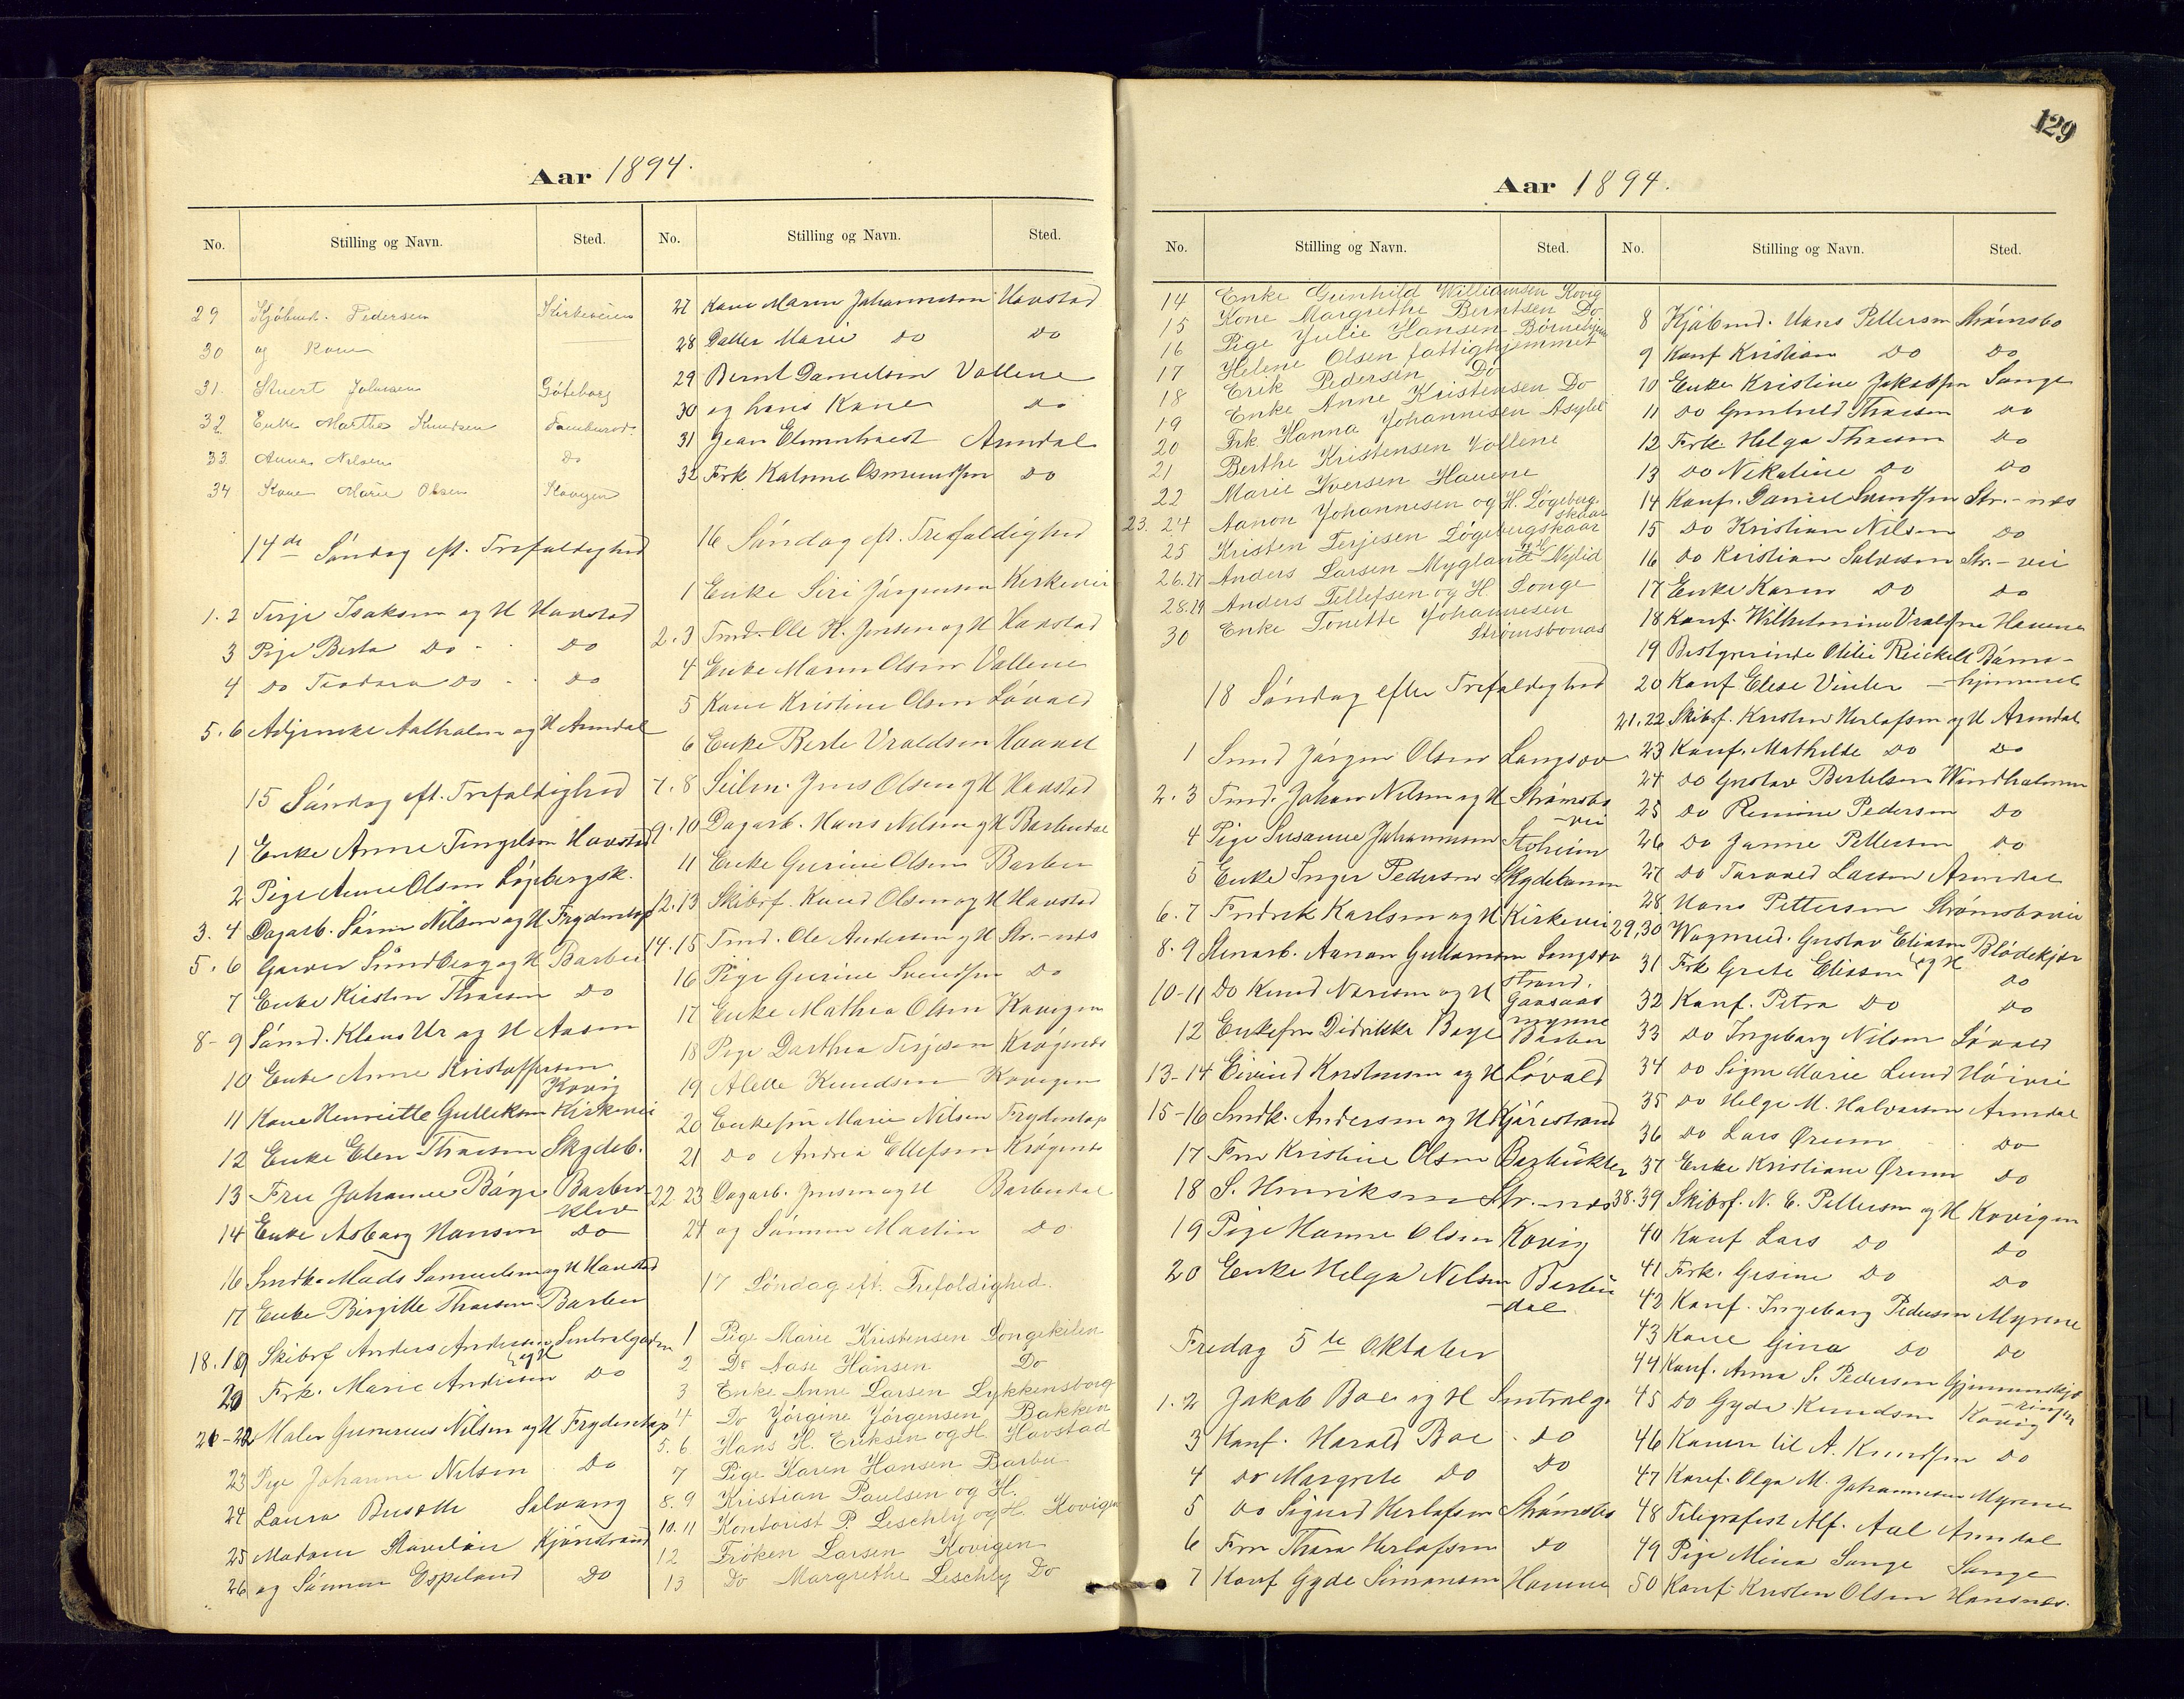 Aar 1894.
No. Stilling og Navn. Sted.
29 Kjøbmd. Pedersen Kirkeveien
30 og Kone
31. Stuert Johnsen Gøteborg
32 Enke Marthe Knudsen
33 Anna Nilsen Do
34 Kone Marie Olsen Kovigen
14de Søndag eft. Trefoldighed
1.2 Terje Isaksen og H Havstad
3 Pige Berta Do Do
4 Do Teodora Do Do
5.6 Adjunckt Aalholm og H Arendal
15 Søndag eft. Trefoldighed
1 Enke Anne Tengelsen Havstad
2 Pige Anne Olsen Løgebergsk.
3. 4 Dagarb. Søren Nilsen og H Frydentop
5. 6 Garver Sundberg og H Barbu
7 Enke Kirsten Thraesen Do
8-9 Sømd. Klaus Ur og H Aasen
10 Enke Anne Kristoffersen
Kovig
11 Kone Henriette Gulliksen Kirkevei
12 Enke Elen Thraesen Skydeb.
13 Fru Johanne Bøye Barbu
klev
14 Enke Asborg Hansen Do
16 Smdk. Mads Samuelsen og H Havstad
17 Enke Birgitte Thraesen Barbu
18.19 Skibsf Anders Andersen og H Sentralgaden
20 Frk. Marie Andersen Do
21-22 Maler Gunerius Nilsen og H Frydentop
23 Pige Johanne Nilsen Do
24 Laura Salvang
25 Madam Kjønstrand
26 og Sønnen Espeland Do
No. Stilling og Navn. Sted.
27 Kone Maren Johannesen Havstad
28 Datter Marie Do Do
29 Bernt Danielsen Vollene
30 og hans Kone Do
31 Jean Arendal
32 Frk Katrine Osmundsen Do
16 Søndag eft. Trefoldighed
1 Enke Siri Jørgensen Kirkevei
2.3 Tmd. Ole K. Jensen og H Havstad
4 Enke Maren Olsen Vollene
5 Kone Kristine Olsen Løvold
6 Enke Berte Vraldsen
7.8 Seilm. Jens Olsen og H Havstad
9.10 Dagarb. Hans Nilsen og H Barbudal
11 Enke Gurine Olsen Barbu
12.13 Skibsf. Knud Olsen og H Havstad
14.15 Tmd. Ole Andersen og H Str.-næs
16 Pige Gurine Svendsen Do
17 Enke Mathea Olsen Kovigen
18 Pige Dorthea Terjesen Krøgenes
19 Alette Knudsen Kovigen
20 Enkefru Marie Nilsen Frydentop
21 Do Andrea Ellefsen Krøgenes
22.23 Dagarb. Jensen og H Barbudal
24 og Sønnen Martin Do
17 Søndag eft. Trefoldighed.
1 Pige Marie Kristensen Songekilen
2 Do Aase Hansen Do
3 Enke Anne Larsen Lykkensborg
4 Do Jörgine Jörgensen Bakken
5. 6 Hans H. Eriksen og H. Havstad
7 Pige Karen Hansen Barbu
8. 9 Kristian Paulsen og H.
10. 11 Kontorist P. Leschly og H. Kovigen
12 Frøken Larsen Kovigen
13 Do Margrethe Leschly Do
129
Aar 1894.
No. Stilling og Navn. Sted.
14 Enke Gunhild Williamsen Kovig
15 Kone Margrethe Berntsen Do
16 Pige Julie Hansen Børnehjem
17 Helene Olsen fattighjemmet
18 Erik Pedersen Do
19 Enke Anne Kristensen Do
20 Frk. Hanna Johannesen Asylet
21 Berthe Kristensen Vollene
22 Marie Iversen Havene
23. 24 Aanon Johannesen og H. Løgeberg-
skaar
25 Kristen Terjesen Løgebergskaar
26.27 Anders Larsen Mygland og H Nylid
28.29 Anders Tellefsen og H. Longe
30 Enke Tonette Johannesen
Strømsbonæs
18 Søndag efter Trefoldighed
1 Smed Jørgen Olsen Langsæv
2. 3 Tmd. Johan Nilsen og H Strømsbo
-vei
4 Pige Susanne Johannesen Stoheim
5 Enke Inger Pedersen Skydebanen
6. 7 Fredrik Karlsen og H Kirkevei
8. 9 Stenarb. Aanon Gullamsen Langsæv
10-11 Do Knud og H
12 Enkefru Didrikke Bøye Barbu
13-14 Eivind Kristensen og H Løvold
15-16 Smdk. Andersen og H Kjøristrand
17 Fru Kristine Olsen
18 S. Henriksen Str.-næs
19 Pige Hanne Olsen Kovig
20 Enke Helga Nilsen Barbu
-dal
Fredag 5te Oktober
1.2 Jakob Boe og H Sentralg.
3 Konf. Harald Boe Do
4 Do Margrete Do Do
5 Do Sigurd Herlofsen Strømsbo
6 Fru Thora Herlofsen Do
7 Konf Gyda Simonsen Havene
No. Stilling og Navn. Sted.
8 Kjøbmd. Hans Pettersen Strømsbo
9 Konf Kristian Do Do
10 Enke Kristine Jakobsen Songe
11 Do Gunhild Thraesen Do
12 Frk. Helga Thraesen Do
13 Do Nikoline Do Do
14 Konf. Daniel Svendsen Str.-næs
15 Do Kristian Nilsen Do
16 Do Kristian Salvesen Str.-vei
17 Enke Karen Do Do
18 Konf. Wilhelmine Vraldsen Havene
19 Bestyrerinde Otilie Reickelt Børne-
20 Konf Elise Vinter -hjemmet
21.22 Skibsf. Kristen Herlofsen og H Arendal
23 Konf. Mathilde Do Do
24 Do Gustav Bertelsen Windholmen
25 Do Pedersen Do
26 Do Janne Pettersen Do
27 Do Torvald Larsen Arendal
28 Hans Pettersen Strømsbovei
29.30 Wagmd. Gustav Eliasen og H Blødekjær
31 Frk Grete Eliasen Do
32 Konf. Petra Do Do
33 Do Ingeborg Nilsen Løvold
34 Do Signe Marie Lund Høivei
35 Do Helge M. Halvorsen Arendal
36 Do Lars Ørum Do
37 Enke Kristiane Ørum Do
38.39 Skibsf. N. E. Pettersen og H Kovigen
40 Konf Lars Do Do
41 Frk. Gesine Do Do
42 Konf. Ingeborg Pedersen Myrene
43 Kone Gina Do Do
44 Konf. Anna S. Pedersen
45 Do Gyda Knudsen Kovig
46 Konen til A. Knudsen Do
47 Konf. Olga M. Johannesen Myrene
48 Telegrafist Alf. Aal Arendal
49 Pige Mina Songe Songe
50 Konf. Kristen Olsen Hansnes.